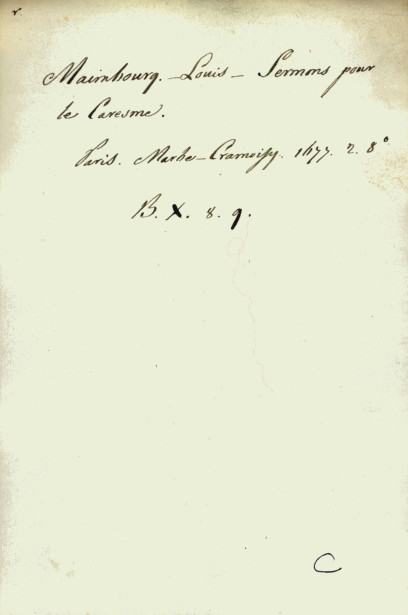 r.
Maimbourg. - Louis - Sermons pour
le Caresme.
Paris. Marbe-Cramoisy. 1677. 2. 8°
B. X. 8. 9.
C